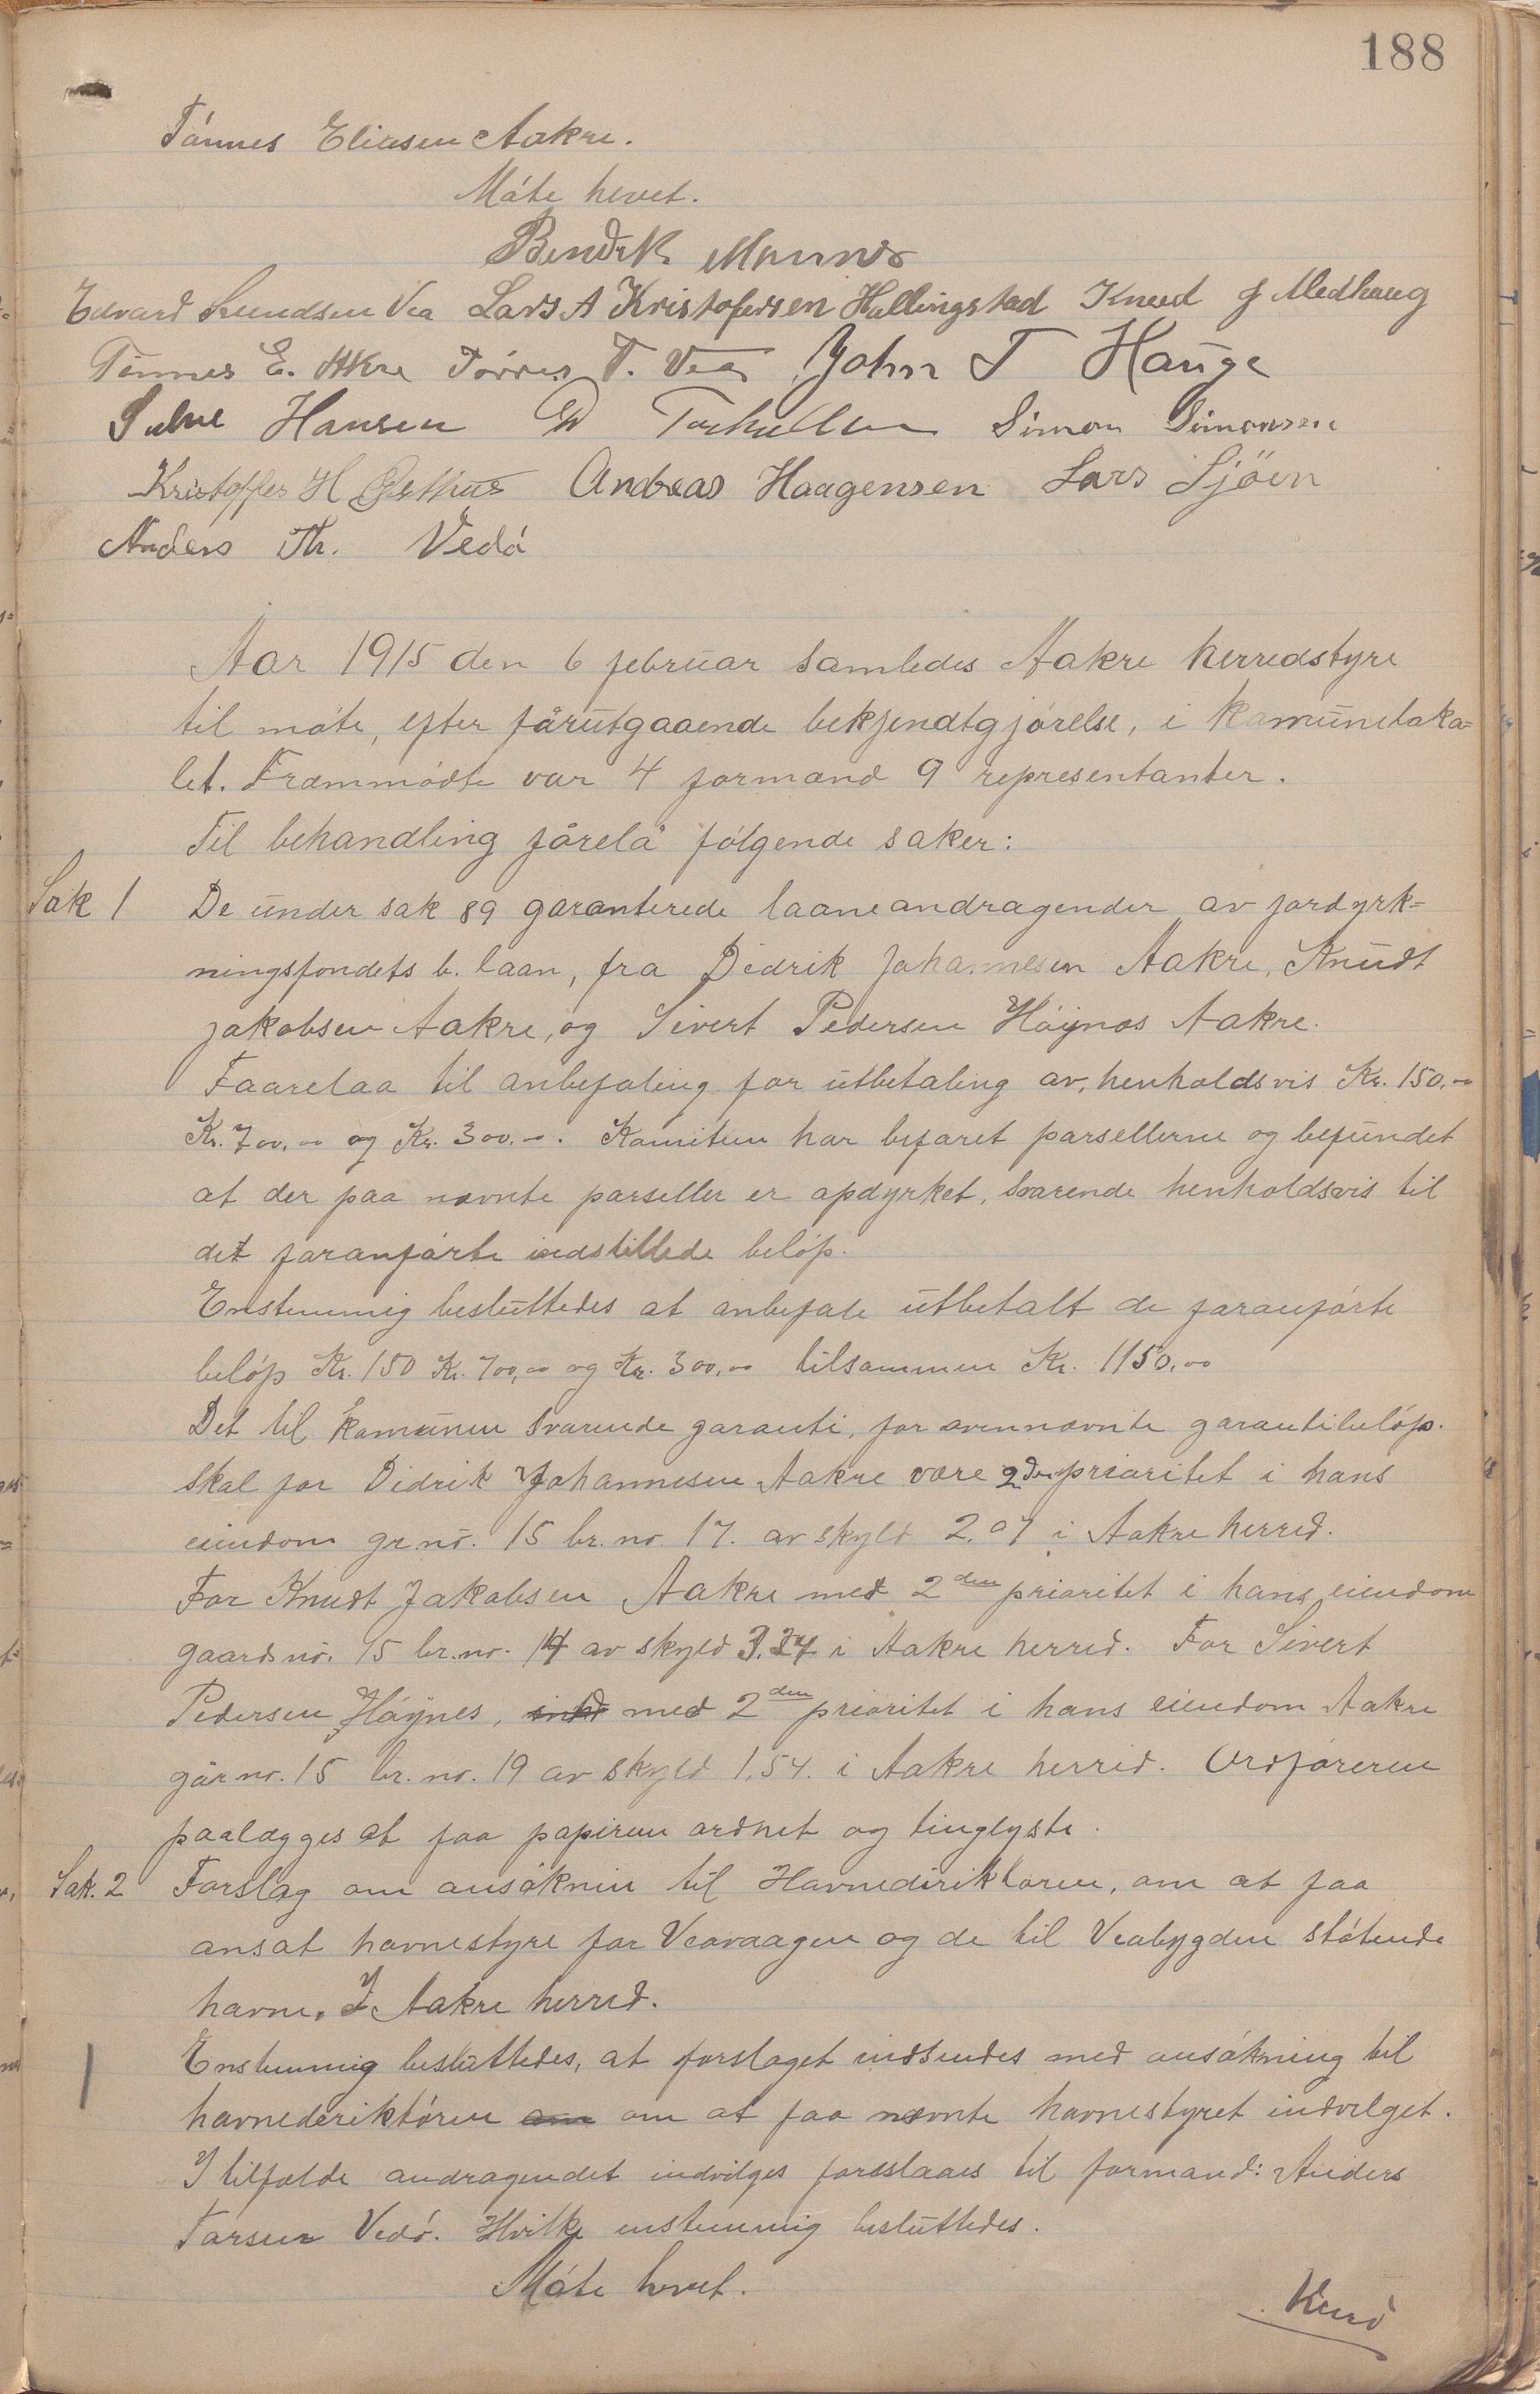 188
Tónnes Eliasen Aakre.
Móte hevet.
Bendik Munno
Edvard Knudsen Vea Lars A Kristofersen Hallingstad Knud J Medhaug
Tönnes E. Akre Tórres T. Vea John T Hauge
Hansen Simon Simonsen
Kristoffer H Andreas Haagensen Lars Sjöen
Anders Th. Vedó
Aar 1915 den 6 februar samledes Aakre herredstyre
til móte, efter fårutgaaende bekjendtgjórelse, i kamunelaka=
let. Frammódte var 4 formænd 9 representanter.
Til behandling fårelå fólgende saker:
Sak 1 De under sak 89 garanterede laaneandragender av jordyrk=
ningsfondets b. laan, fra Didrik Johannesen Aakre, Knudt
Jakobsen Aakre, og Sivert Pedersen Hóynes Aakre.
Faarelaa til anbefaling for utbetaling av, henholdsvis Kr. 150,00
Kr. 700,00 og Kr. 300.00. Komiteen har befaret parsellerne og befundet
at der paa nævnte parseller er opdyrket, svarende henholdsvis til
det foranfórte indstillede belóp.
Enstemmig besluttedes at anbefale utbetalt de foranfórte
belóp Kr. 150 Kr. 700,00 og Kr. 300,00 tilsammen Kr. 1150,00
Det til kamunen svarende garanti, for ovennævnte garantibelóp.
skal for Didrik Johannesen Aakre være 2den prioritet i hans
eiendom gr.no. 15 br.no. 17. av skyld 2.07 i Aakre herred.
For Knudt Jakobsen Aakre med 2den prioritet i hans eiendom
gaardsno. 15 br.no. 14 av skyld 3.34 i Aakre herred. For Sivert
Pedersen Hóynes, med 2den prioritet i hans eiendom Aakre
går no. 15 br. no. 19 av skyld 1.54. i Aakre herred. Ordfóreren
paalægges at faa papirene ordnet og tinglyste.
Sak. 2 Forslag om ansóknin til Havnediriktoren, om at faa
ansat havnestyre for Veavaagen og de til Veabygden stótende
havne. I Aakre herred.
Enstemmig besluttedes, at forslaget indsendes med ansókning til
havnederiktóren om at faa nævnte havnestyret indvilget.
I tilfælde andragendet indvilges forslaaes til formand: Anders
Torsen Vedó. Hvilke enstemmig besluttedes.
Móte hevet.